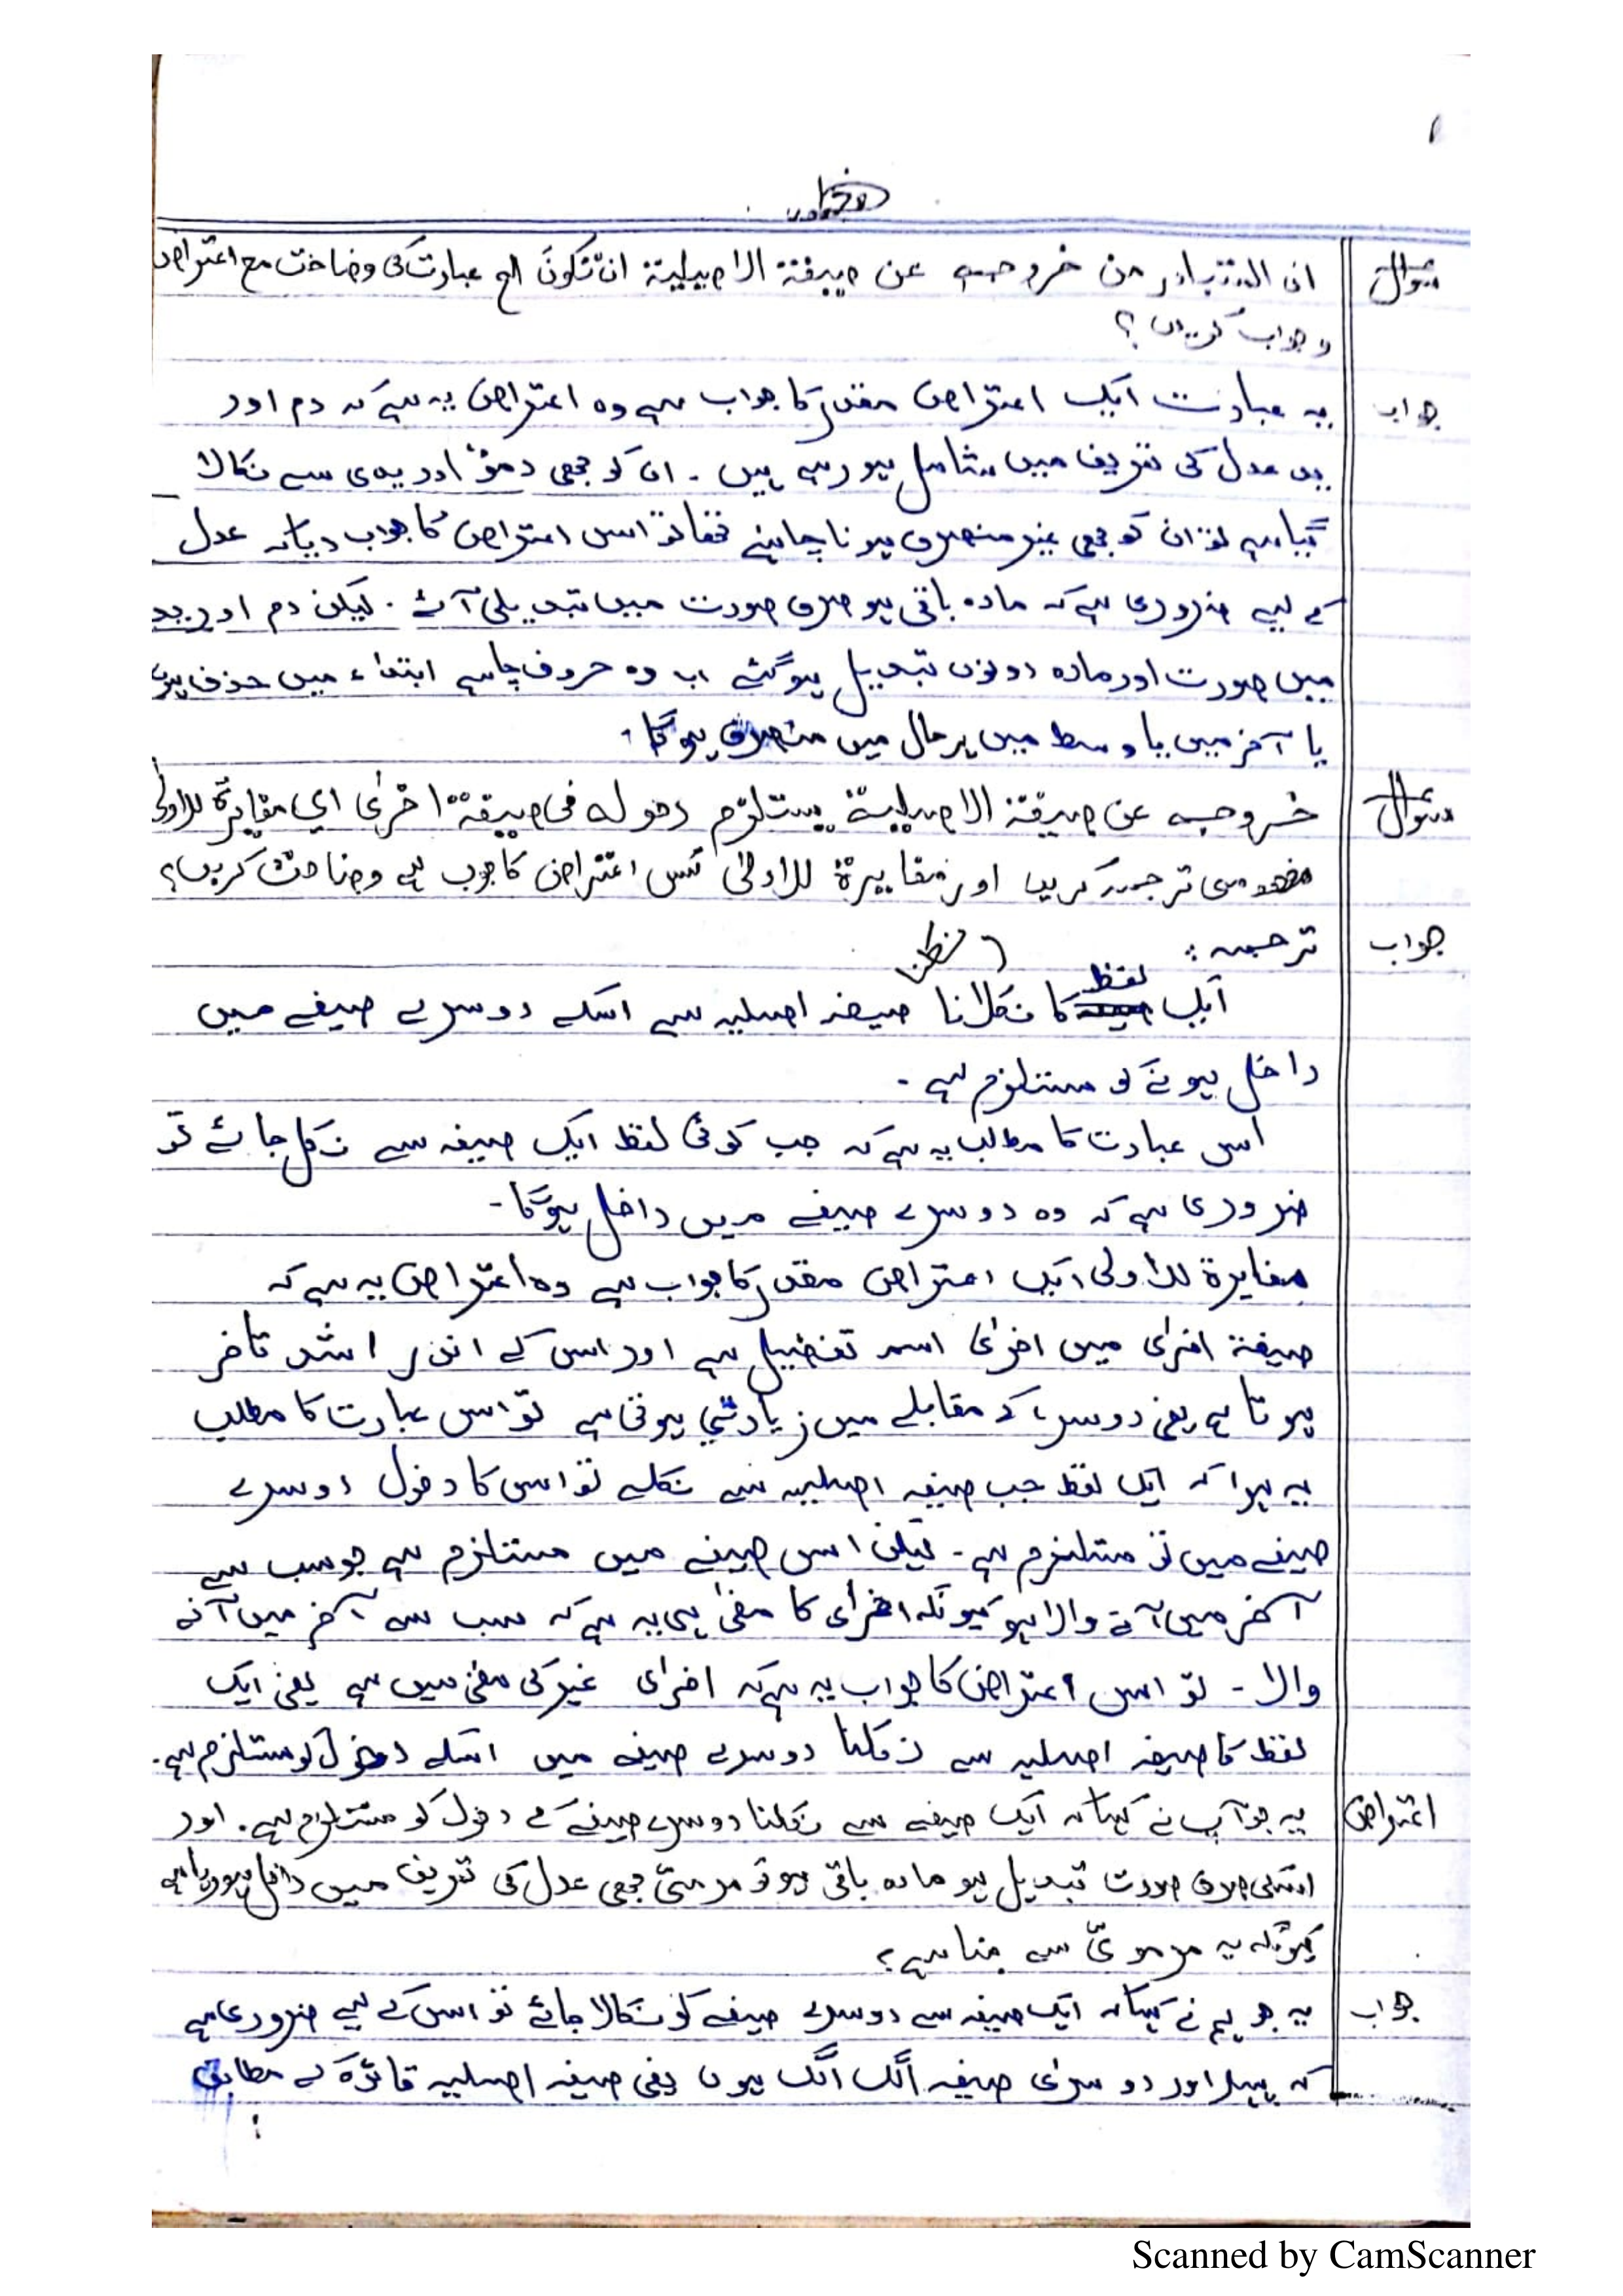 ۱
سوال ان المتبادر من خروجہ عن صیغتۃ الاصیلیۃ ان تکون الخ عبارت کی وضاحت مع اعتراض
و جواب کریں؟
جواب یہ عبارت ایک اعتراض مقدر کا جواب ہے وہ اعتراض یہ ہے کہ دم اور
ید عدل کی تعریف میں شامل ہو رہے ہیں ۔ ان کو بھی دموٌ اور یدی سے نکالا
گیا ہے تو ان کو بھی غیر منصرف ہونا چاہئیے تھا تو اس اعتراض کا جواب دیا کہ عدل
کے لیے ضروری ہے کہ مادہ باقی ہو صرف صورت میں تبدیلی آئے ۔ لیکن دم اور ید
میں صورت اور مادہ دونوں تبدیل ہوگئے اب وہ حروف چاہے ابتداء میں حذف ہوں
یا آخر میں یا وسط میں ہر حال میں منصرف ہوگا ۔
سوال خروجہ عن صیغتۃ الاصیلیۃ یستلزم دخولہ فی صیغۃ اخرٰی ای مغایرۃ للاولی
ترجمہ کریں اور مغایرۃ للاولیٰ کس اعتراض کا جوب ہے وضاحت کریں؟
جواب ترجمہ :
ایک لفظ کا نکلانا صیغہ اصلیہ سے اسکے دوسرے صیغے میں
نکلنا
داخل ہونے کو مستلزم ہے ۔
اس عبارت کا مطالب یہ ہے کہ جب کوئی لفظ ایک صیغہ سے نکل جائے تو
ضروری ہے کہ وہ دوسرے صیغے میں داخل ہوگا ۔
مغایرۃ للاولی ایک اعتراض مقدر کا جواب ہے وہ اعتراض یہ ہے کہ
صیغۃ اخرٰی میں اخرٰی اسم تفضیل ہے اور اس کے اندر اشد تاخر
ہوتا ہے یعنی دوسرے کے مقابلے میں زیادتی ہوتی ہے تو اس عبارت کا مطلب
یہ ہوا کہ ایک لفظ جب صیغہ اصلییہ سے نکلے تو اس کا دخول دوسرے
صیغے میں تو مستلزم ہے ۔ لیکن اس صیغے میں مستلزم ہے جو سب سے
آخر میں آنے والا ہو کیونکہ اخرٰی کا معنیٰ ہی یہ ہے کہ سب سے آخر میں آنے
والا ۔ تو اس اعتراض کا جواب یہ ہے کہ اخرٰی غیر کی معنیٰ میں ہے یعنی ایک
لفظ کا صیغہ اصلیہ سے نکلنا دوسرے صیغے میں اسکے دخول کو مستلزم ہے ۔
اعتراض یہ جو آپ نے کہا کہ ایک صیغے سے نکلنا دوسرے صیغے کے دخول کو مستلزم ہے ۔ اور
اسکی صرف صورت تبدیل ہو مادہ باقی ہو تو مرمیّ بھی عدل کی تعریف میں داخل ہو رہا ہے
کیونکہ یہ مرمویٌ سے بنا ہے ؟
جواب یہ جو ہم نے کہا کہ ایک صیغہ سے دوسرے صیغے کو نکالا جائے تو اس کے لیے ضروری ہے
کہ پہلا اور دوسرٰی صیغہ الگ الگ ہوں یعنی صیغہ اصلییہ قائدہ کے مطابق
Scanned by CamScanner